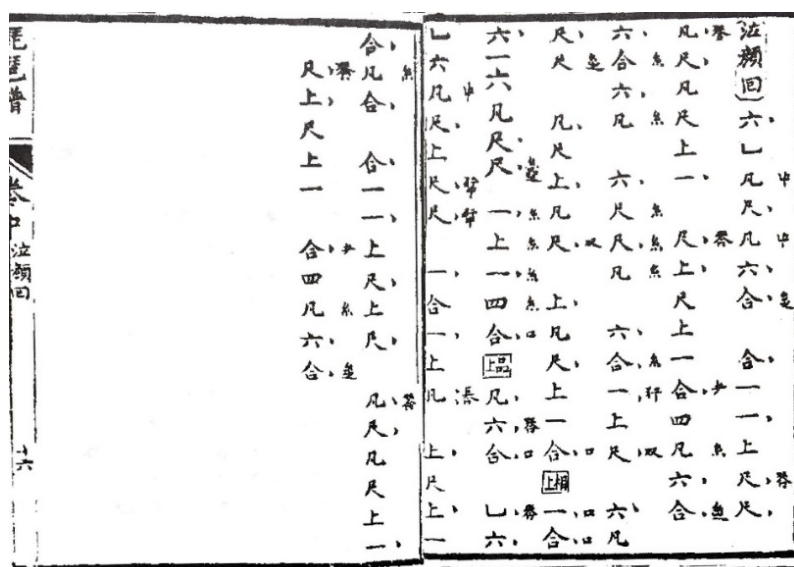 泣顔回 六、乚凡中尺、凡中六、合、合、一一、上尺、尺、
凡、尺、凡尺上一、尺、上、尺上一合、四凡糸六、合、
六、合糸六、凡糸六、尺糸尺、糸凡糸六、合、糸一、上尺、双六、凡
尺、尺凡、尺上、凡尺、双上、凡尺、上一合、口上相一、口合、口
六、一六凡尺、尺、一、糸上糸一、糸四糸合、口上品凡、六、合、口乚、六、
乚六凡中尺、上尺、尺、一、合一、上凡上、尺上、一
合、凡糸合、合、一一、上尺、上尺、凡、尺、凡尺上一、
尺、上、尺上一合、四凡糸六、合、
琵琶譜 卷中 泣顔回 十六